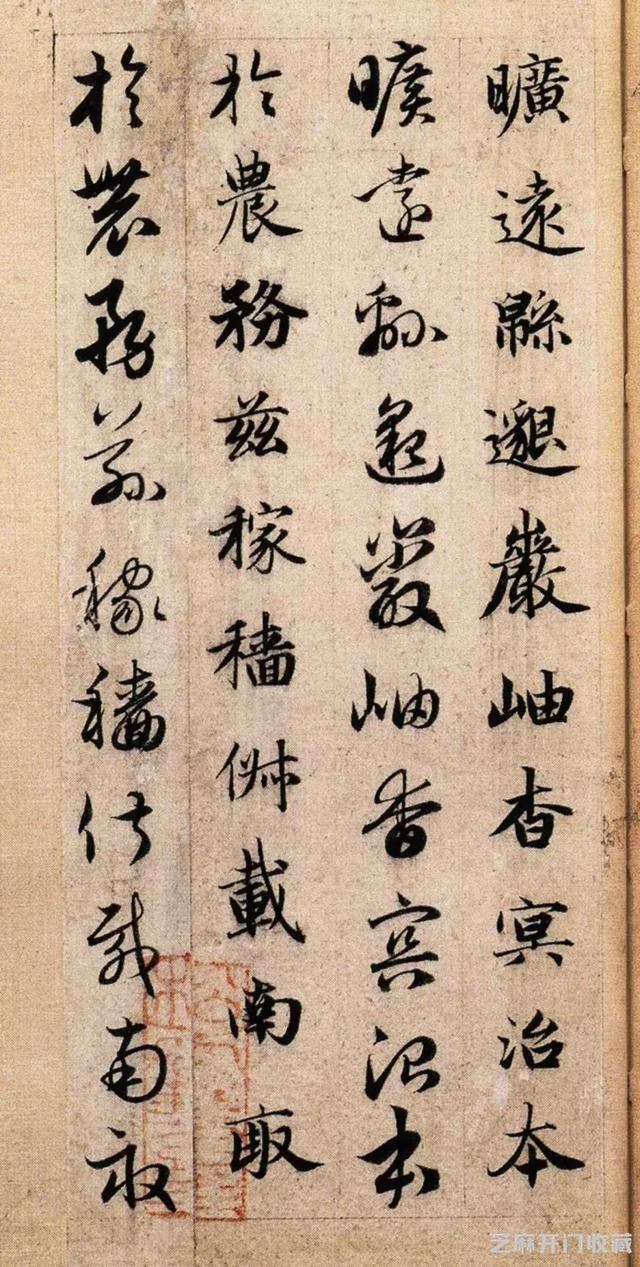 曠遠緜邈巖岫杳冥治本
曠遠緜邈巖岫杳冥治本
於農務茲稼穡俶載南畝
於農務茲稼穡俶載南畝
芝麻开门收藏